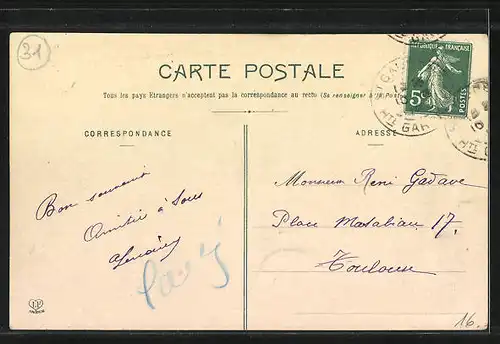 31
CARTE POSTALE
Tous les pays Etrangers n'acceptent pas la correspondance au recto (Se renseigner à la Poste)
RÉPUBLIQUE FRANÇAISE
5c
POSTES
HTE GAR
CORRESPONDANCE
ADRESSE
Bon souvenir
Amitié à tous
Monsieur René Gadave
Place Matabiau 17.
Toulouse
16.